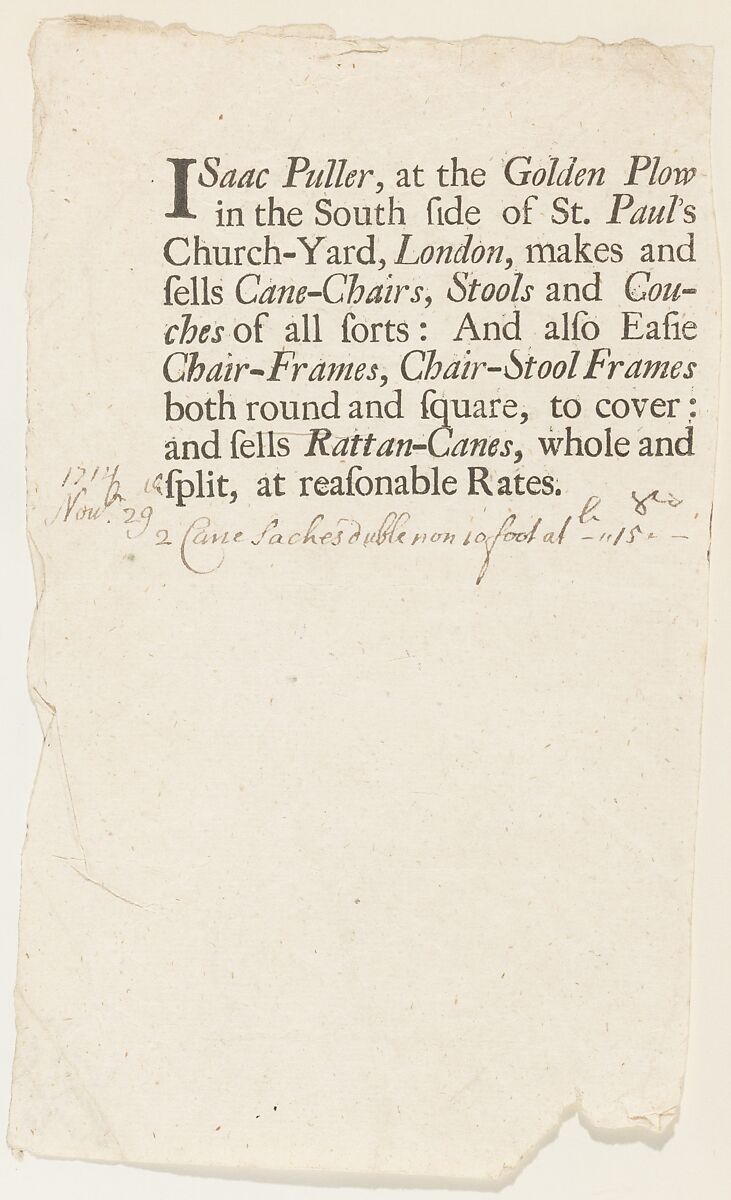 ISaac Puller, at the Golden Plow
in the South ſide of St. Paul's
Church-Yard, London, makes and
ſells Cane-Chairs, Stools and Cou-
ches of all ſorts: And alſo Eaſie
Chair-Frames, Chair-Stool Frames
both round and ſquare, to cover:
and ſells Rattan-Canes, whole and
ſplit, at reaſonable Rates.
1714
Nov.br 29
2 Cane Saches duble non 10 foot at 15